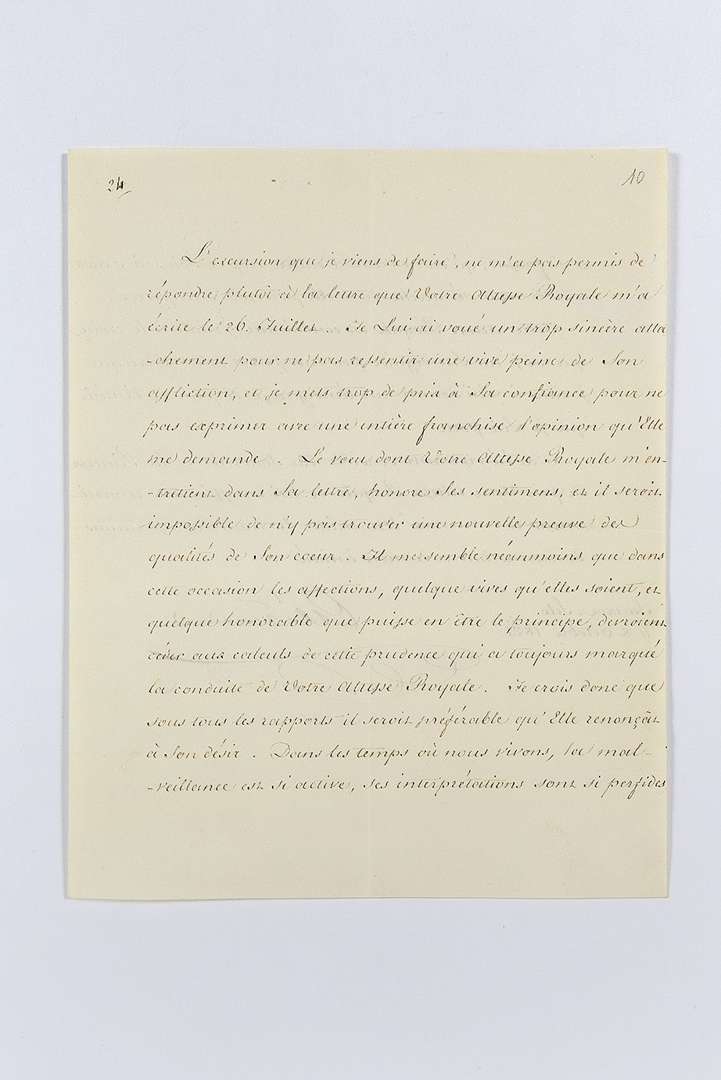 24
10
L'excursion que je viens de faire, ne m'a pas permis de
répondre plutôt à la lettre que Votre Altesse Royale m'a
écrite le 26. Juillet. Je Lui ai voué un trop sincère atta
-chement pour ne pas ressentir une vive peine de Son
affliction, et je mets trop de prix à Sa confiance pour ne
pas exprimer avec une entière franchise l'opinion qu'Elle
me demande. Le voeu dont Votre Altesse Royale m'en-
-tretient dans Sa lettre, honore Ses sentimens, et il seroit
impossible de n'y pas trouver une nouvelle preuve des
qualités de Son coeur. Il me semble néanmoins que dans
cette occasion les affections, quelque vives qu'elles soient, et
quelque honorable que puisse en être le principe, devroient
céder aux calculs de cette prudence qui a toujours marqué
la conduite de Votre Altesse Royale. Je crois donc que
sous tous les rapports il seroit préférable qu'Elle renonçât
à Son désir. Dans les temps où nous vivons, la mal-
-veillance est si active, ses interprétations sont si perfides